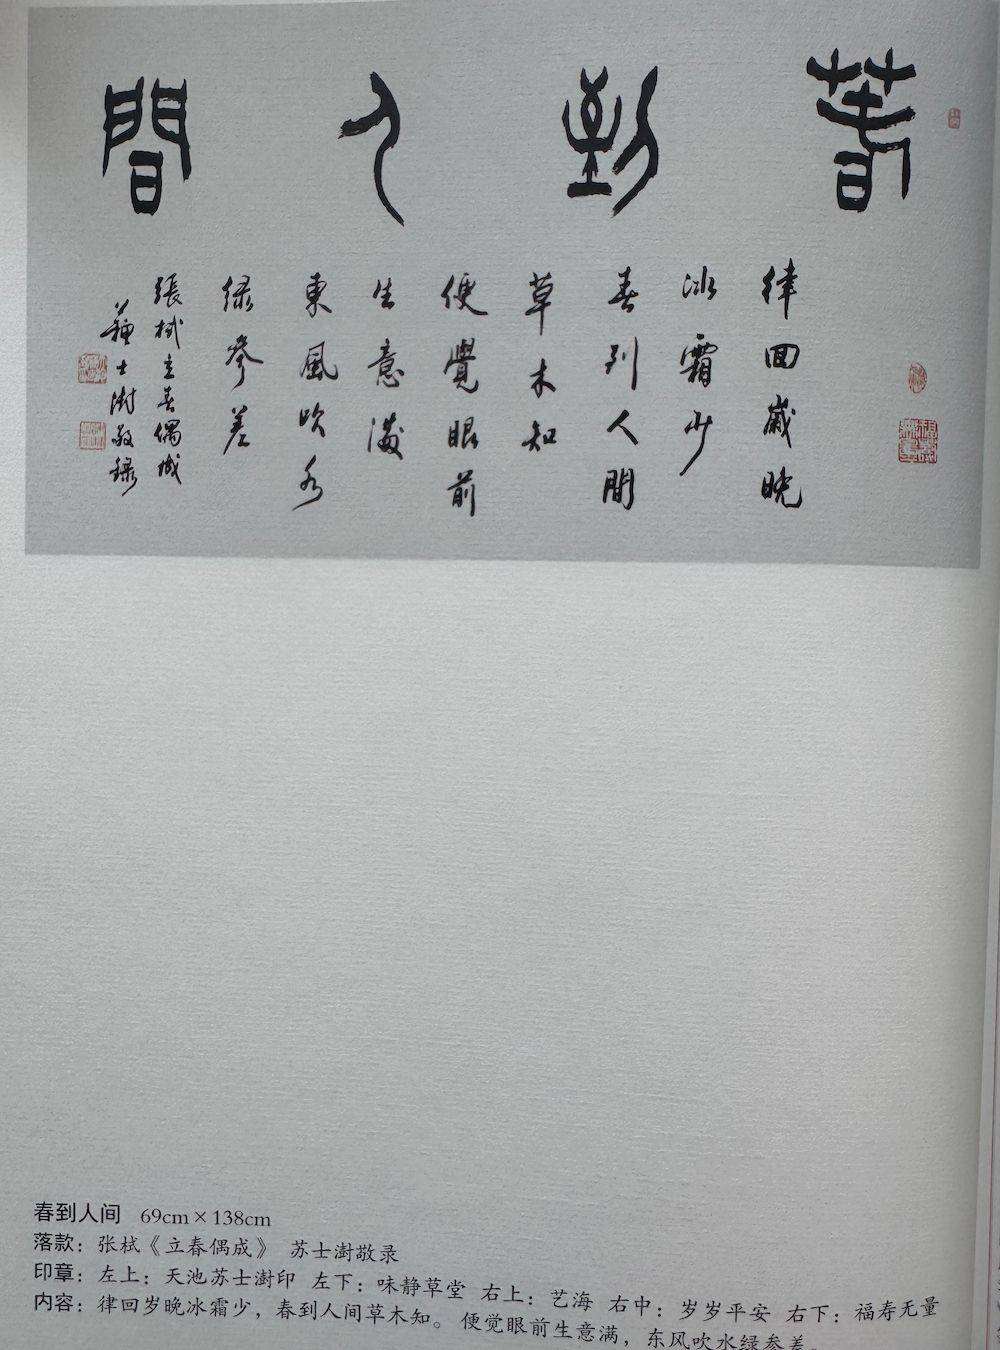 春到人間
律回歲晚
冰霜少
春到人間
草木知
便覺眼前
生意滿
東風吹水
緑參差
張栻立春偶成
蘇士澍敬録
春到人间 69cm×138cm
落款：张栻《立春偶成》 苏士澍敬录
印章：左上：天池苏士澍印 左下：味静草堂 右上：艺海 右中：岁岁平安 右下：福寿无量
内容：律回岁晚冰霜少，春到人间草木知。便觉眼前生意满，东风吹水绿参差。